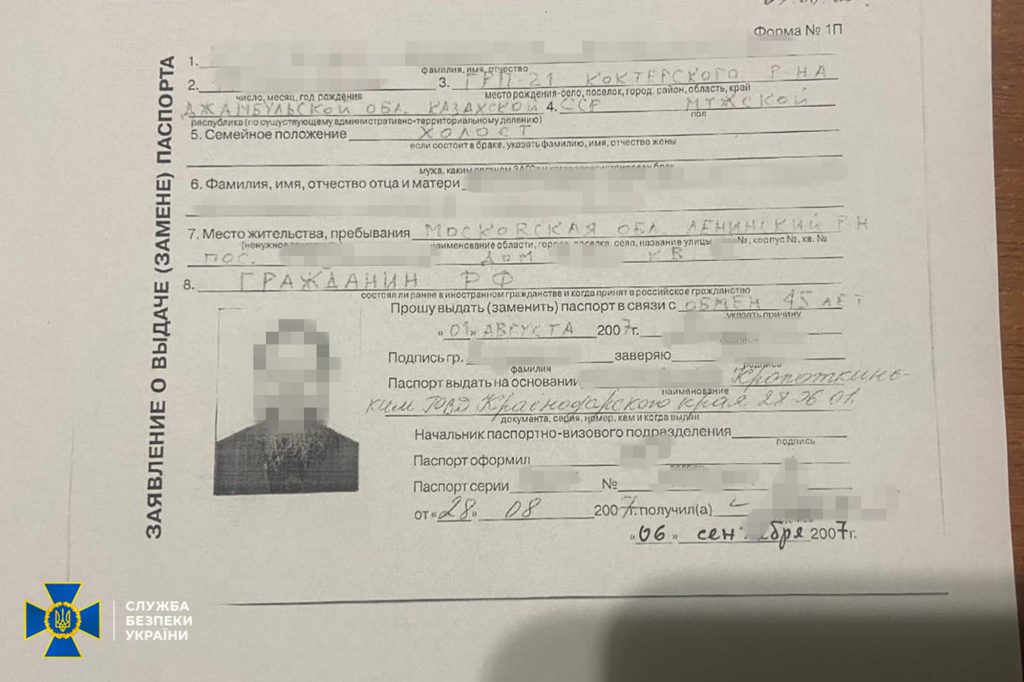 Форма № 1П
ЗАЯВЛЕНИЕ О ВЫДАЧЕ (ЗАМЕНЕ) ПАСПОРТА
1.
фамилия, имя, отчество
2. 3. ГРП-21 КОКТЕРСКОГО Р-НА
число, месяц, год рождения место рождения-село, поселок, город, район, область, край
ДЖАМБУЛЬСКОЙ ОБЛ. КАЗАХСКОЙ 4. ССР МУЖСКОЙ
республика (по существующему административно-территориальному делению) пол
5. Семейное положение ХОЛОСТ
если состоит в браке, указать фамилию, имя, отчество жены
мужа, каким органом ЗАГСа и когда зарегистрирован брак
6. Фамилия, имя, отчество отца и матери
7. Место жительства, пребывания МОСКОВСКАЯ ОБЛ. ЛЕНИНСКИЙ Р-Н
(ненужное наименование области, города, поселка, села, название улицы №, корпус №, кв. №
ПОС. ДОМ КВ
8. ГРАЖДАНИН РФ
состоял ли ранее в иностранном гражданстве и когда принят в российское гражданство
Прошу выдать (заменить) паспорт в связи с ОБМЕН 45 ЛЕТ
указать причину
«01» АВГУСТА 2007г.
Подпись гр. заверяю
фамилия подпись
Паспорт выдать на основании Кропоткинс-
наименование
ким ГОВД Краснодарского края 28.06.01.
документа, серия, номер, кем и когда выдан
Начальник паспортно-визового подразделения
подпись
Паспорт оформил
подпись
Паспорт серии №
от «28» 08 2007г. получил(а)
подпись
«06» сентября 2007г.
СЛУЖБА
БЕЗПЕКИ
УКРАЇНИ